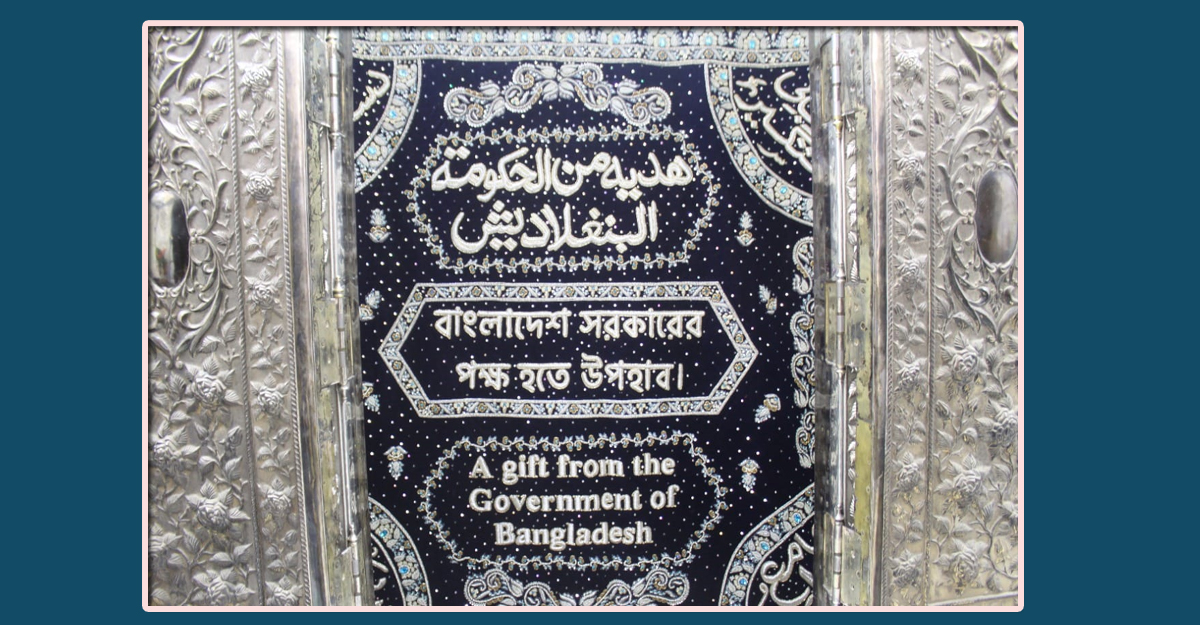 هديه من الحكومة
البنغلاديش
বাংলাদেশ সরকারের
পক্ষ হতে উপহাব।
A gift from the
Government of
Bangladesh